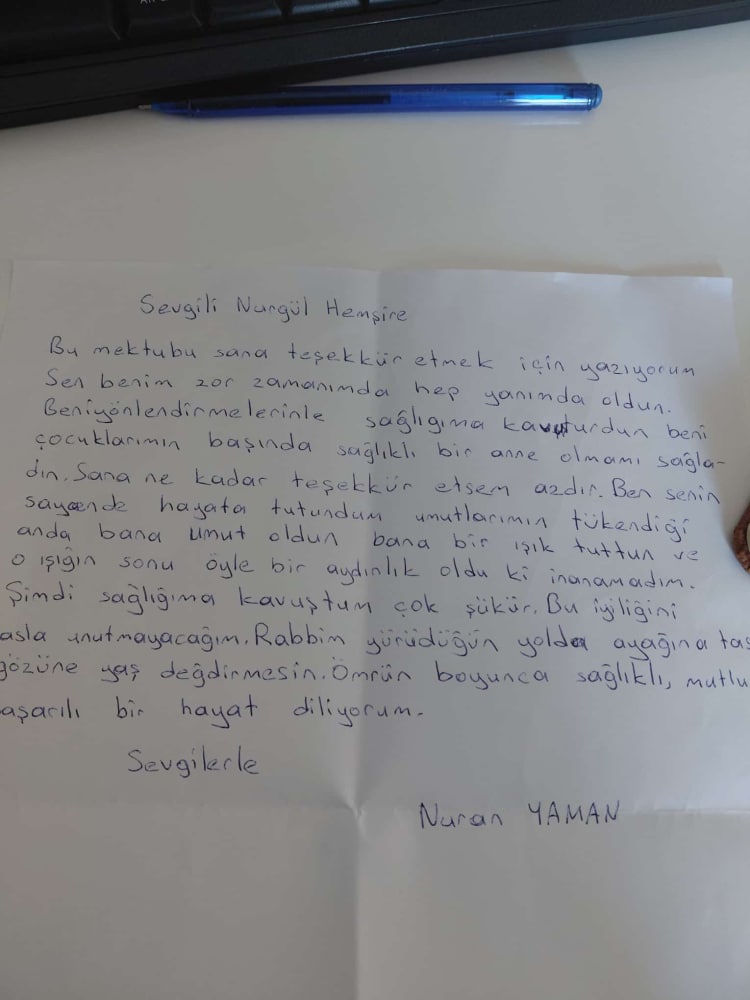 Sevgili Nurgül Hemşire
Bu mektubu sana teşekkür etmek için yazıyorum
Sen benim zor zamanımda hep yanında oldun.
Beniyönlendirmelerinle sağlıgıma kavuşturdun beni
çocuklarımın başında sağlıklı bir anne olmamı sağla-
dın. Sana ne kadar teşekkür etsem azdır. Ben senin
sayende hayata tutundum umutlarımın tükendiği
anda bana umut oldun bana bir ışık tuttun ve
o ışığın sonu öyle bir aydınlık oldu ki inanamadım.
Şimdi sağlığıma kavuştum çok şükür. Bu iyiliğini
asla unutmayacağım. Rabbim yürüdüğün yolda ayağına taş
gözüne yaş değdirmesin. Ömrün boyunca sağlıklı, mutlu
aşarılı bir hayat diliyorum.
Sevgilerle
Nuran YAMAN